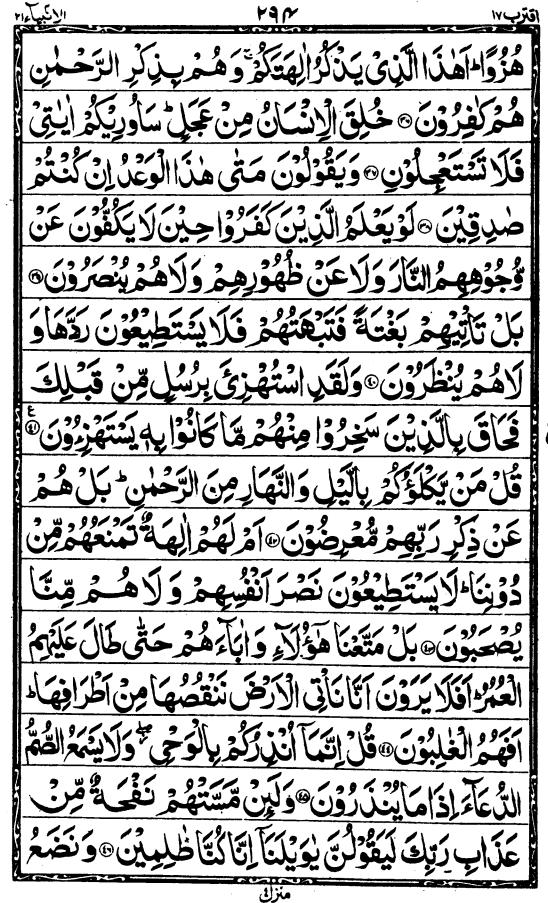 اقترب ١٧ ٢٩٤ الانبياء ٢١
هُزُوًا ؕ اَهٰذَا الَّذِىْ يَذْكُرُ اٰلِهَتَكُمْ ۚ وَهُمْ بِذِكْرِ الرَّحْمٰنِ
هُمْ كٰفِرُوْنَ ﴿٣٦﴾ خُلِقَ الْاِنْسَانُ مِنْ عَجَلٍ ؕ سَاُورِيْكُمْ اٰيٰتِىْ
فَلَا تَسْتَعْجِلُوْنِ ﴿٣٧﴾ وَيَقُوْلُوْنَ مَتٰى هٰذَا الْوَعْدُ اِنْ كُنْتُمْ
صٰدِقِيْنَ ﴿٣٨﴾ لَوْ يَعْلَمُ الَّذِيْنَ كَفَرُوْا حِيْنَ لَا يَكُفُّوْنَ عَنْ
وُّجُوْهِهِمُ النَّارَ وَلَا عَنْ ظُهُوْرِهِمْ وَلَا هُمْ يُنْصَرُوْنَ ﴿٣٩﴾
بَلْ تَاْتِيْهِمْ بَغْتَةً فَتَبْهَتُهُمْ فَلَا يَسْتَطِيْعُوْنَ رَدَّهَا وَ
لَا هُمْ يُنْظَرُوْنَ ﴿٤٠﴾ وَلَقَدِ اسْتُهْزِئَ بِرُسُلٍ مِّنْ قَبْلِكَ
فَحَاقَ بِالَّذِيْنَ سَخِرُوْا مِنْهُمْ مَّا كَانُوْا بِهٖ يَسْتَهْزِءُوْنَ ﴿٤١﴾ ع
قُلْ مَنْ يَّكْلَؤُكُمْ بِالَّيْلِ وَالنَّهَارِ مِنَ الرَّحْمٰنِ ؕ بَلْ هُمْ
عَنْ ذِكْرِ رَبِّهِمْ مُّعْرِضُوْنَ ﴿٤٢﴾ اَمْ لَهُمْ اٰلِهَةٌ تَمْنَعُهُمْ مِّنْ
دُوْنِنَا ؕ لَا يَسْتَطِيْعُوْنَ نَصْرَ اَنْفُسِهِمْ وَلَا هُمْ مِّنَّا
يُصْحَبُوْنَ ﴿٤٣﴾ بَلْ مَتَّعْنَا هٰٓؤُلَآءِ وَاٰبَآءَهُمْ حَتّٰى طَالَ عَلَيْهِمُ
الْعُمُرُ ؕ اَفَلَا يَرَوْنَ اَنَّا نَاْتِى الْاَرْضَ نَنْقُصُهَا مِنْ اَطْرَافِهَا ؕ
اَفَهُمُ الْغٰلِبُوْنَ ﴿٤٤﴾ قُلْ اِنَّمَاۤ اُنْذِرُكُمْ بِالْوَحْىِ ۖ وَلَا يَسْمَعُ الصُّمُّ
الدُّعَآءَ اِذَا مَا يُنْذَرُوْنَ ﴿٤٥﴾ وَلَئِنْ مَّسَّتْهُمْ نَفْحَةٌ مِّنْ
عَذَابِ رَبِّكَ لَيَقُوْلُنَّ يٰوَيْلَنَاۤ اِنَّا كُنَّا ظٰلِمِيْنَ ﴿٤٦﴾ وَنَضَعُ
منزل ٤